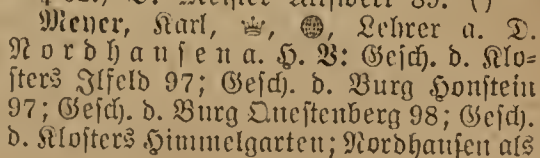 Meyer, Karl, Lehrer a. D.
Nordhausen a. H. B: Gesch. d. Klo-
sters Ilfeld 97; Gesch. d. Burg Honstein
97; Gesch. d. Burg Questenberg 98; Gesch.
d. Klosters Himmelgarten; Nordhausen als